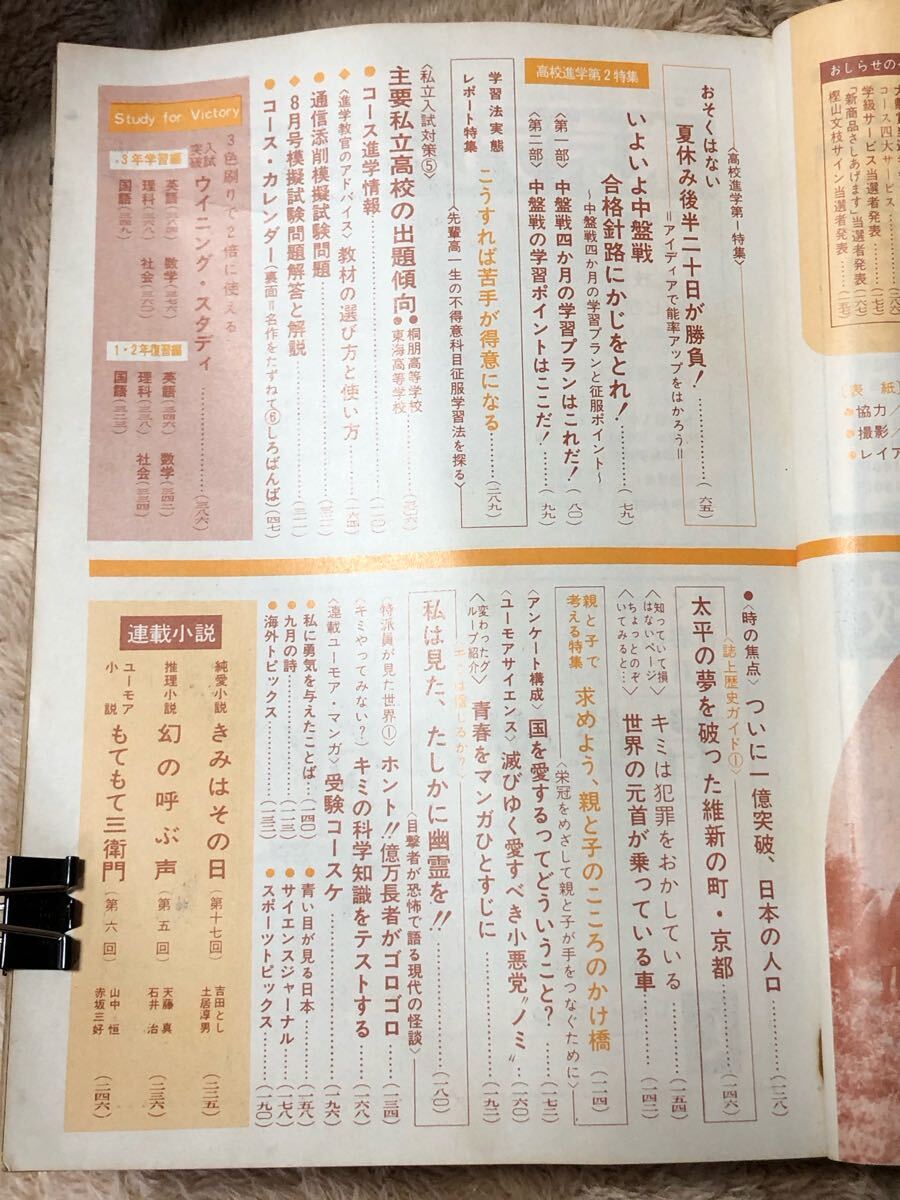 おしらせのペ
コース四大サービス
学級サービス当選者発表
「新商品さしあげます」当選者発表
樫山文枝サイン当選者発表
〔表紙
協力/
撮影/
レイア
〈高校進学第一特集〉
おそくはない
夏休み後半二十日が勝負!……(六五)
=アイディアで能率アップをはかろう=
高校進学第2特集
いよいよ中盤戦
合格針路にかじをとれ!……(七九)
~中盤戦四か月の学習プランと征服ポイント~
〈第一部〉中盤戦四か月の学習プランはこれだ!……(八〇)
〈第二部〉中盤戦の学習ポイントはここだ!……(九九)
学習法実態
レポート特集
こうすれば苦手が得意になる……(二八九)
〈先輩高一生の不得意科目征服学習法を探る〉
〈私立入試対策⑤〉
主要私立高校の出題傾向
●桐朋高等学校
●東海高等学校
……(三〇六)
●コース進学情報……(一二〇)
◆〈進学教官のアドバイス〉教材の選び方と使い方……(一六四)
通信添削模擬試験問題
◆8月号模擬試験問題解答と解説……(三一一)
●コース・カレンダー(裏面=名作をたずねて⑥しろばんば)(四七)
Study for Victory
3色刷りで2倍に使える
入試突破
ウイニング・スタディ……(三八六)
・3年学習編
英語
数学(三七六)
理科(三六八)
社会(三六〇)
国語(三四九)
1・2年復習編
英語(三四六)
数学(三四二)
理科(三三八)
社会(三三四)
国語(三二三)
●〈時の焦点〉ついに一億突破、日本の人口……(一二八)
〈誌上歴史ガイド①〉
太平の夢を破った維新の町・京都……(一四六)
〈知っていて損はないページ〉
キミは犯罪をおかしている……(一五四)
ちょっとのぞいてみると…
世界の元首が乗っている車……(一四二)
親と子で考える特集
求めよう、親と子のこころのかけ橋……(一一四)
〈栄冠をめざして親と子が手をつなぐために〉
〈アンケート構成〉国を愛するってどういうこと?……(一七二)
〈ユーモアサイエンス〉滅びゆく愛すべき小悪党〝ノミ〟……(一六〇)
〈変わったグループ紹介〉青春をマンガひとすじに……(一九二)
私は見た、たしかに幽霊を!!……(一八〇)
〈目撃者が恐怖で語る現代の怪談〉
〈特派員が見た世界①〉ホント!!億万長者がゴロゴロ……(一三四)
〈キミやってみない?〉キミの科学知識をテストする……(一六八)
〈連載ユーモア・マンガ〉受験コースケ……(一九六)
●私に勇気を与えたことば……(一四〇)
●青い目が見る日本……(一五八)
●九月の詩……(一一三)
●サイエンスジャーナル……(一七八)
●海外トピックス……(一三二)
●スポーツトピックス……(一九〇)
連載小説
純愛小説 きみはその日(第十七回) 吉田とし 土居淳男 (二二五)
推理小説 幻の呼ぶ声(第五回) 天藤真 石井治 (二三六)
ユーモア小説 もてもて三衛門(第六回) 山中恒 赤坂三好 (二四六)